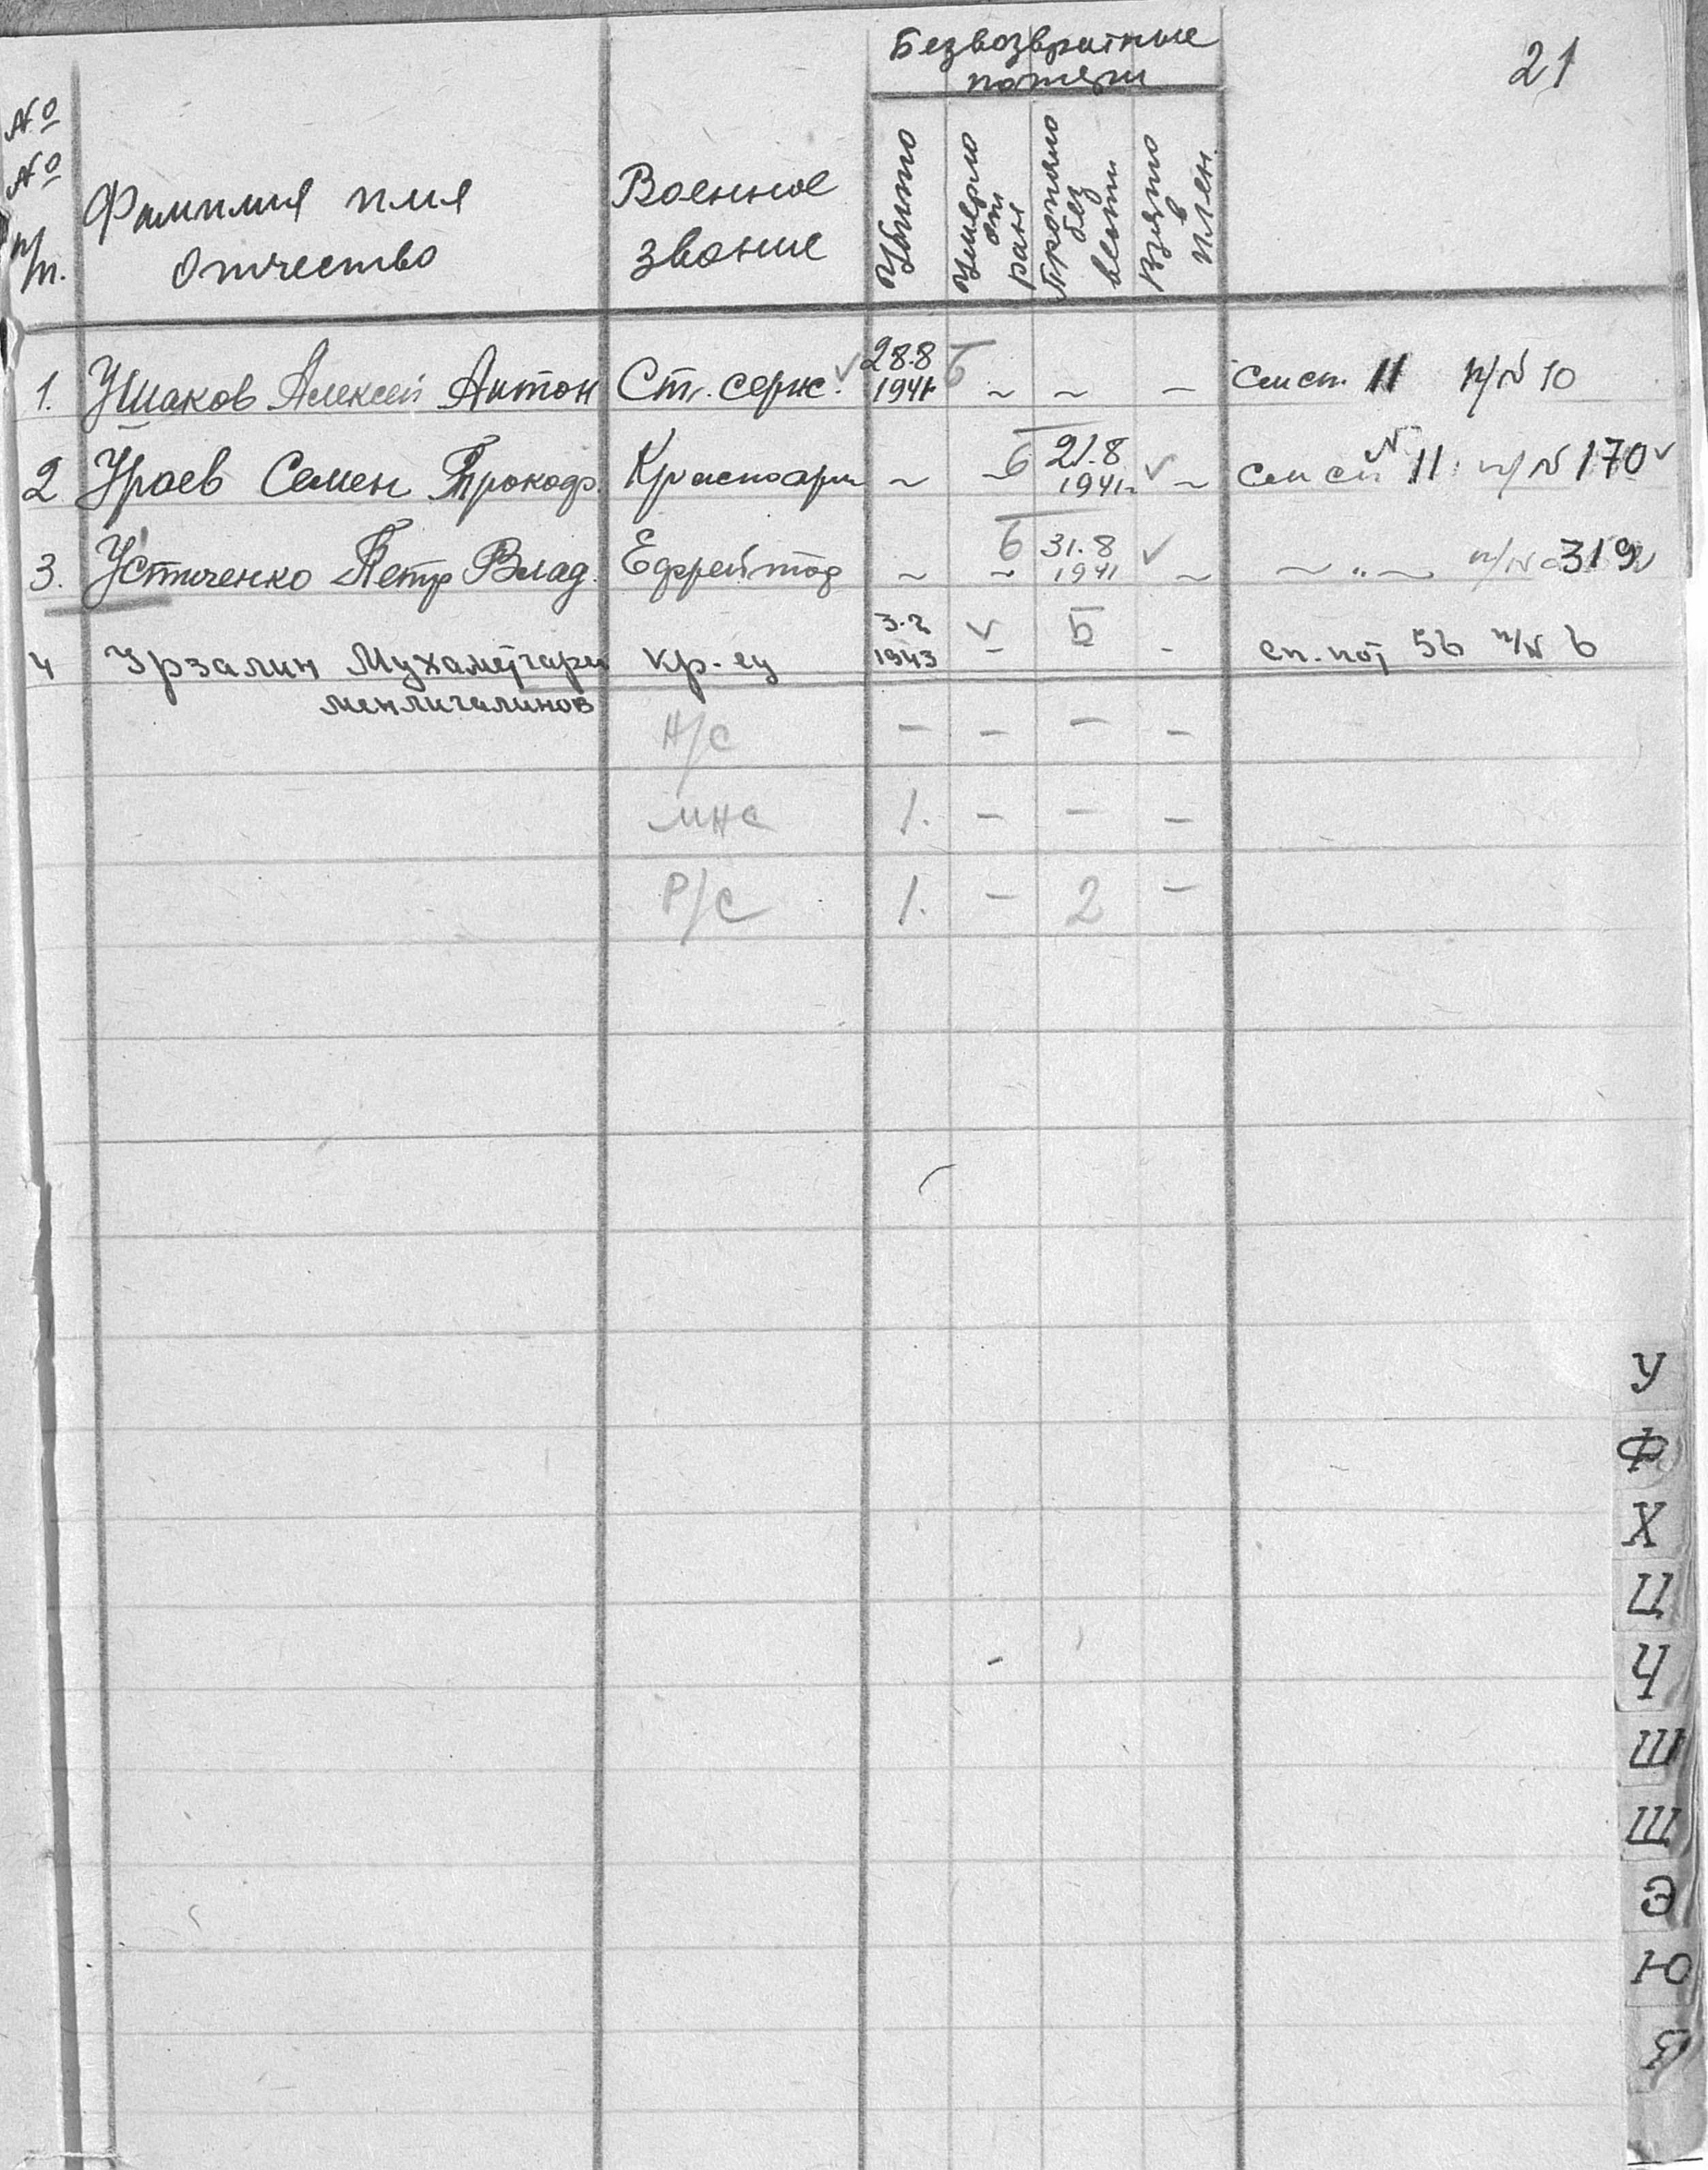 21
Безвозвратные
потери
№
№
п/п.
Фамилия имя
отчество
Военное
звание
Убито
Умерло
от
ран
Пропало
без
вести
Взято
в
плен.
1. Ушаков Алексей Антон Ст. серж. 28.8 1941г Б ~ ~ – См сп. 11 п/№ 10
2 Ураев Семен Прокоф. Красноарм ~ ~ Б 21.8 1941г ~ См сп № 11 п/№ 170
3. Устиченко Петр Влад. Ефрейтор ~ ~ Б 31.8 1941 ~ ~ " ~ п/№ 319
4 Урзалин Мухаметгари кр-ец 3.2 1943 – Б - сп. пот 56 п/№ 6
менлигалинов
Н/С – – – –
МНС 1. – – –
Р/С 1. – 2 –
У
Ф
Х
Ц
Ч
Ш
Щ
Э
Ю
Я